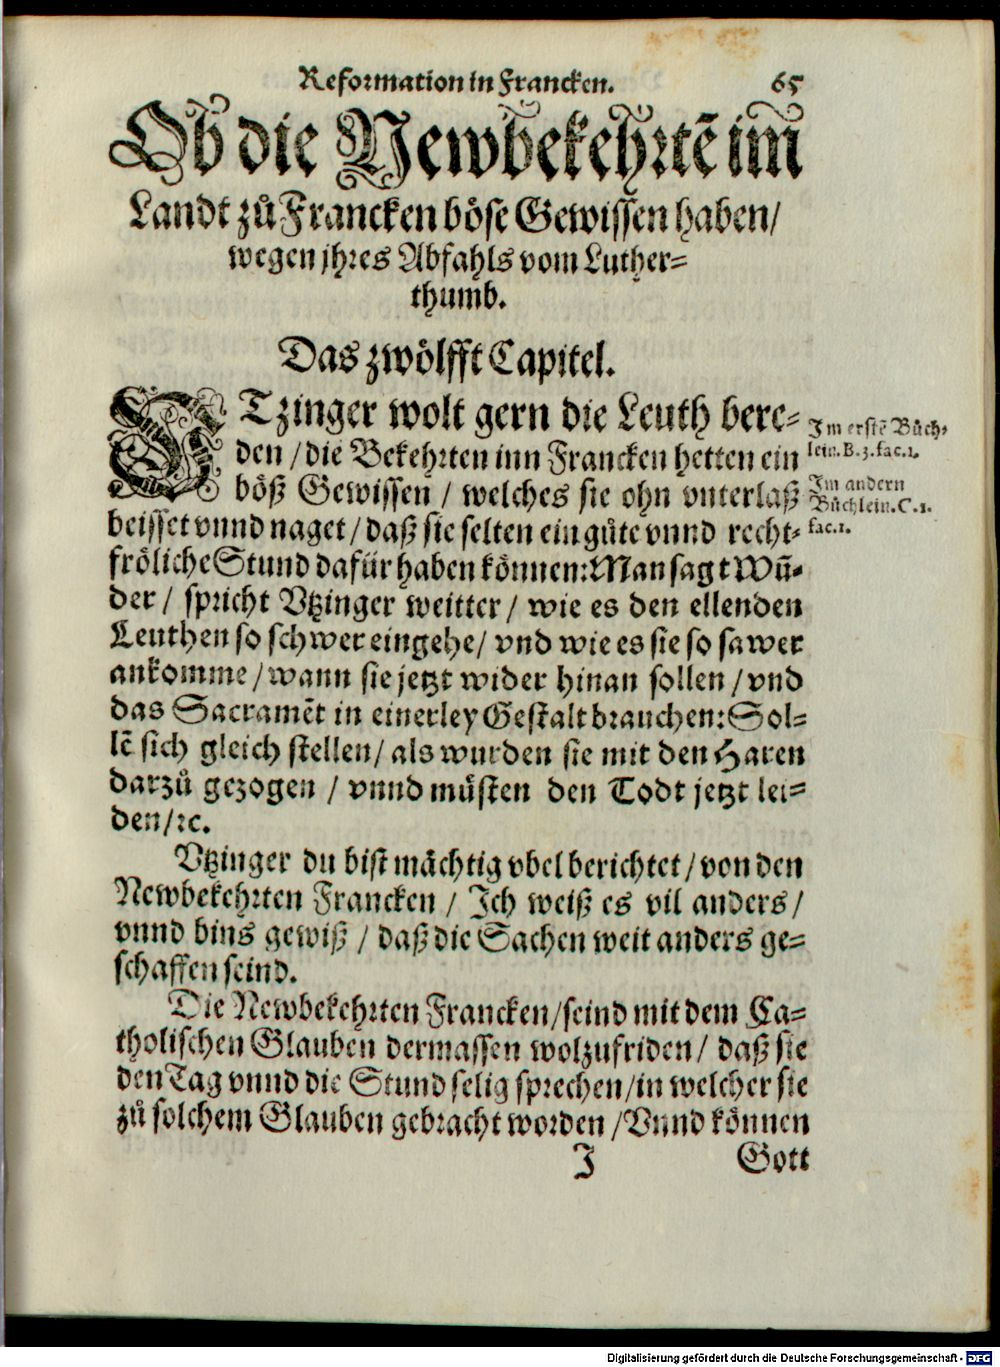 Reformation in Francken. 65
Ob die Newbekehrtẽ im̃
Landt zů Francken böse Gewissen haben/
wegen jhres Abfahls vom Luther=
thumb.
Das zwölfft Capitel.
VTzinger wolt gern die Leuth bere=
den / die Bekehrten inn Francken hetten ein
böß Gewissen / welches sie ohn vnterlaß
beisset vnnd naget / daß sie selten ein gůte vnnd recht=
fröliche Stund dafür haben können: Man sagt Wũ=
der / spricht Vtzinger weitter / wie es den ellenden
Leuthen so schwer eingehe / vnd wie es sie so sawer
ankomme / wann sie jetzt wider hinan sollen / vnd
das Sacramẽt in einerley Gestalt brauchen: Sol=
lẽ sich gleich stellen / als wurden sie mit den Haren
darzů gezogen / vnnd müsten den Todt jetzt lei=
den /ꝛc.
Im erstẽ Büch=
lein. B. 3. fac. 1.
Im andern
Büchlein. C. 1.
fac. 1.
Vtzinger du bist mächtig vbel berichtet / von den
Newbekehrten Francken / Ich weiß es vil anders /
vnnd bins gewiß / daß die Sachen weit anders ge=
schaffen seind.
Die Newbekehrten Francken / seind mit dem Ca=
tholischen Glauben dermassen wolzufriden / daß sie
den Tag vnnd die Stund selig sprechen / in welcher sie
zů solchem Glauben gebracht worden / Vnnd können
J Gott
Digitalisierung gefördert durch die Deutsche Forschungsgemeinschaft - DFG